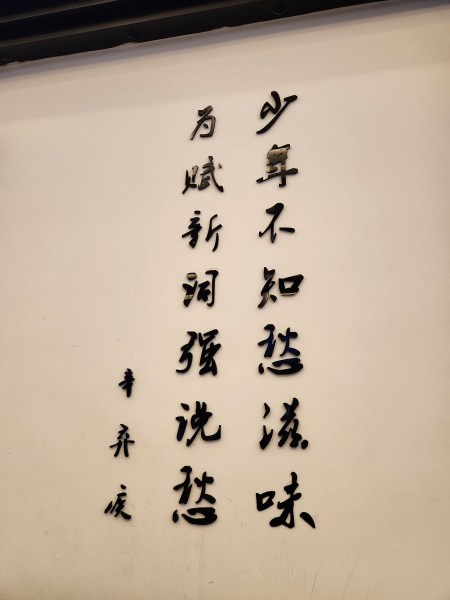 少年不知愁滋味
为赋新词强说愁
辛弃疾